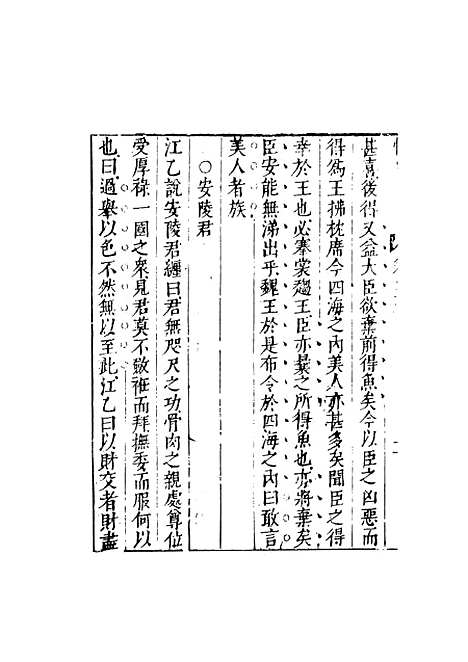 甚喜後得又益大臣欲棄前得魚矣今以臣之凶惡而
得為王拂枕席今四海之內美人亦甚多矣聞臣之得
幸於王也必褰裳趨王臣亦曩之所得魚也亦將棄矣
臣安能無涕出乎魏王於是布令於四海之內曰敢言
美人者族
○安陵君
江乙說安陵君纏曰君無咫尺之功骨肉之親處尊位
受厚祿一國之衆見君莫不斂袵而拜撫委而服何以
也曰過舉以色不然無以至此江乙曰以財交者財盡